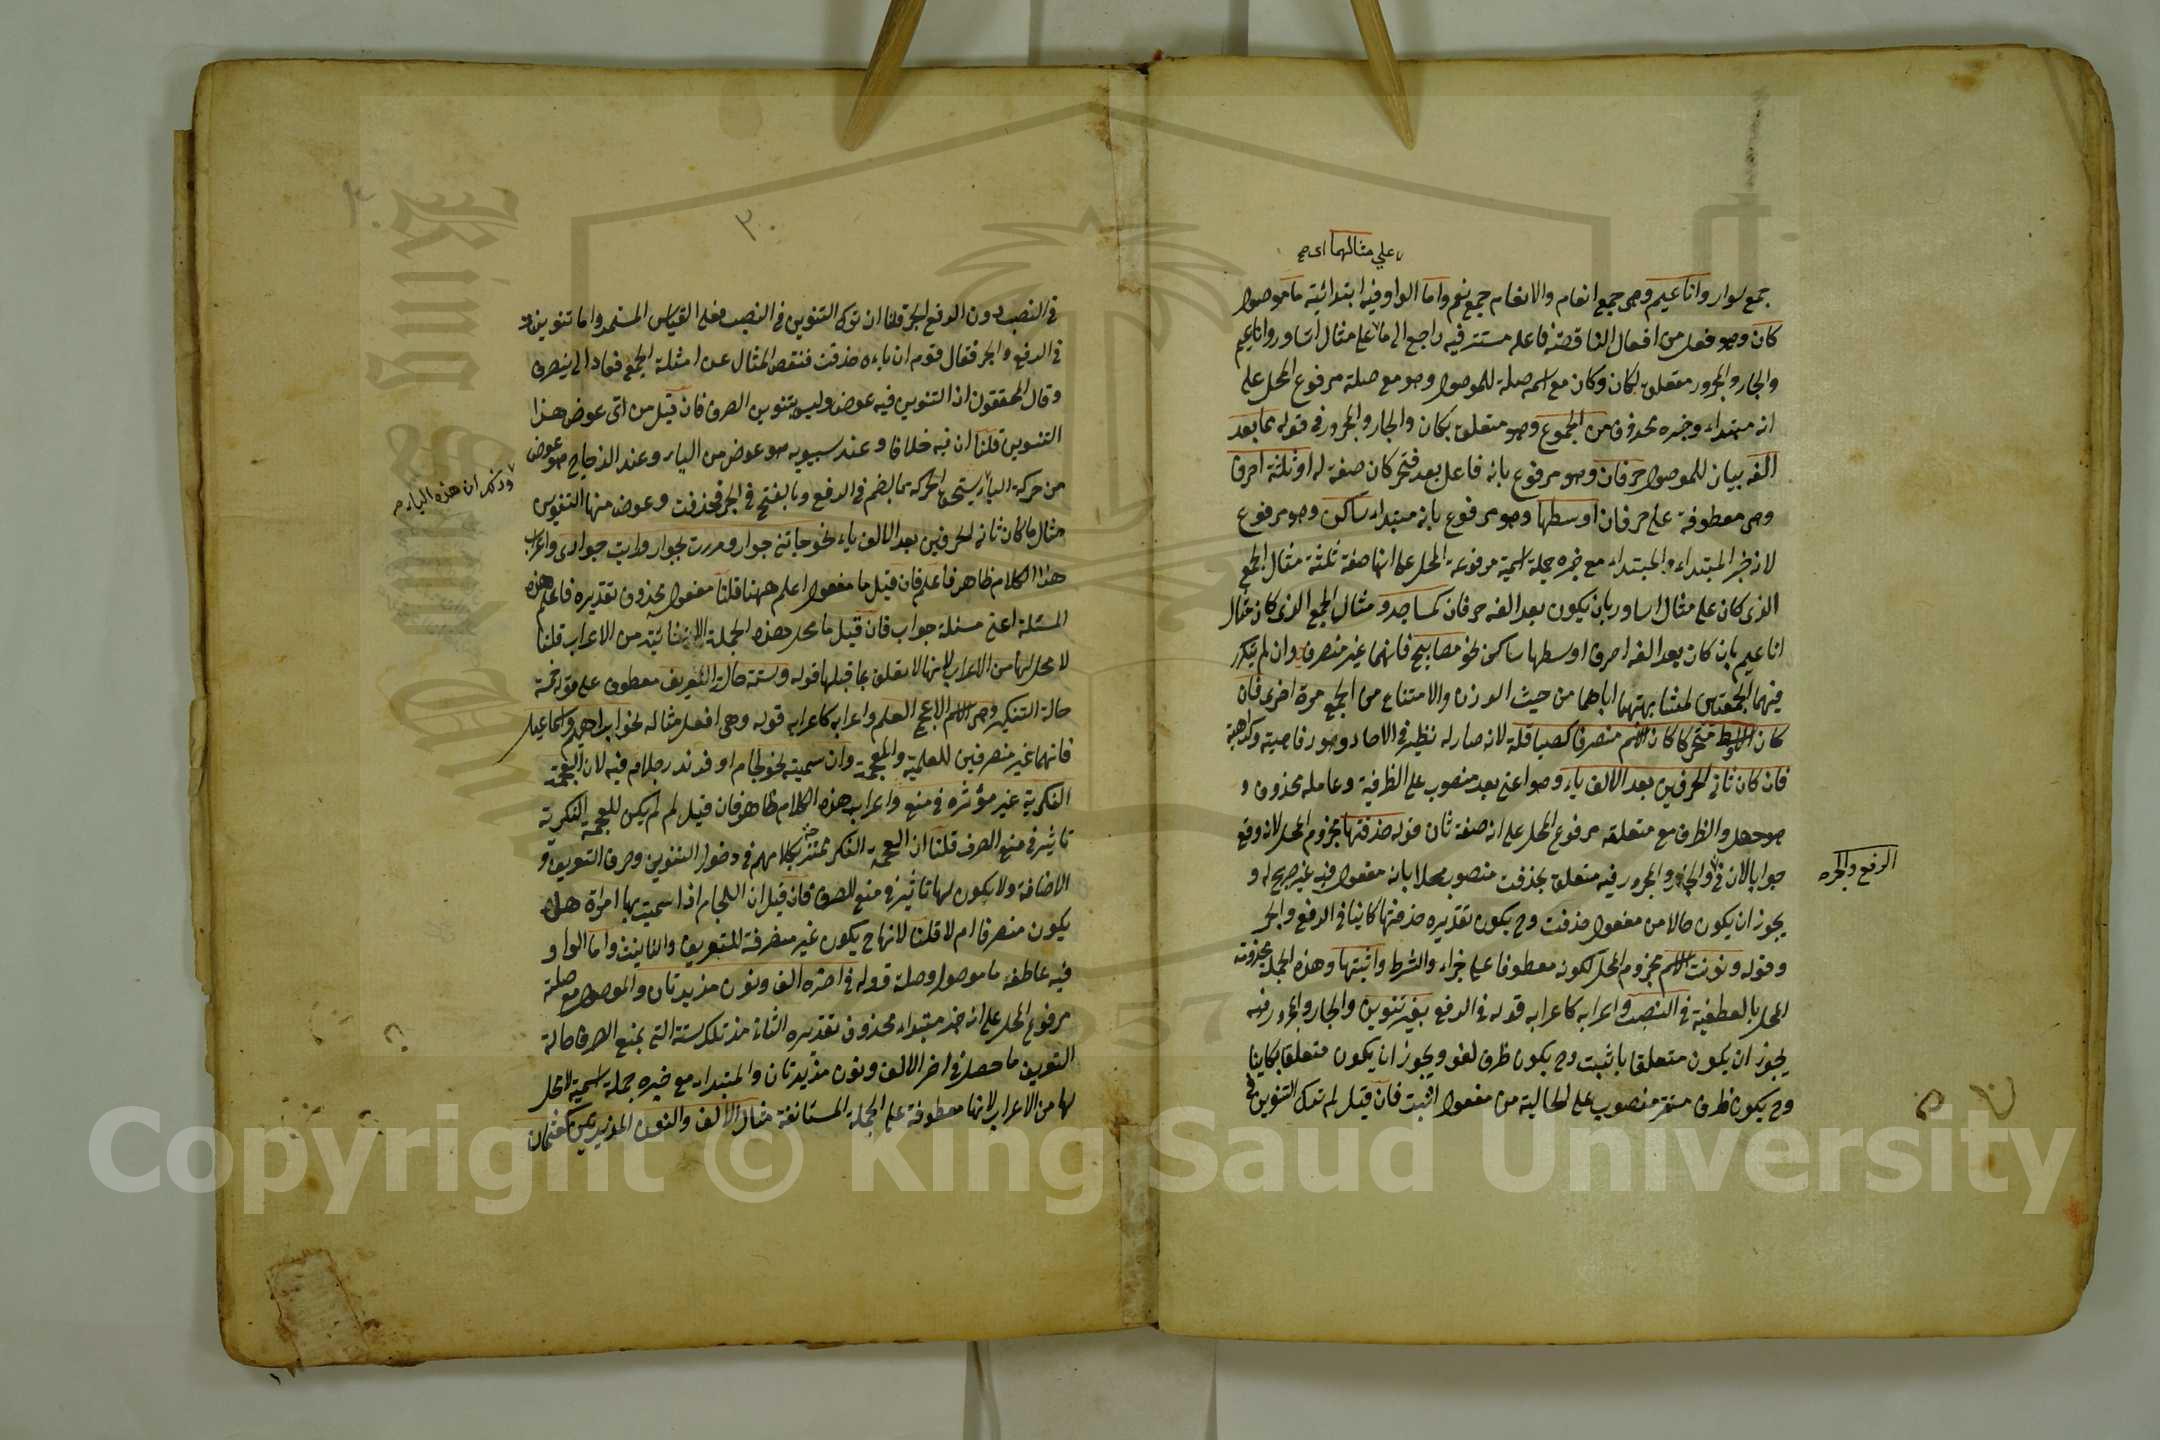 علي مثالهما اى صح
جمع سوار واناعيم وهى جمع انعام والانعام جمع نعم واما الواو فيه ابتدائية ما موصول
كان وهو فعل من افعال الناقصة فاعله مستتر فيه راجع الى ما على مثال اساور واناعيم
والجار والمجرور متعلق لكان وكان مع اسمه صلة للموصول وهو مع صلته مرفوع المحل على
انه مبتداء وخبره محذوف من الجموع وهو متعلق بكان والجار والمجرور فى قوله مما بعد
الفه بيان للموصول حرفان وهو مرفوع بانه فاعل بعد فتح كان صفة له او ثلثة احرف
وهى معطوفة على حرفان اوسطها وهو مرفوع بانه مبتداء ساكن وهو مرفوع
لانه خبر المبتداء والمبتداء مع خبره جملة اسمية مرفوعة المحل على انها صفة ثلثة مثال الجمع
الذى كان على مثال اساور بان يكون بعد الفه حرفان كمساجد ومثال الجمع الذى كان مثال
اناعيم بان كان بعد الفه احرف اوسطها ساكن نحو مصابيح فانهما غير منصرف وان لم يتكرر
فيهما الجمعتين لمشابهتهما اياهما من حيث الوزن والامتناع من الجمع مرة اخرى فان
كان الاوسط متحركا كان الاسم منصرفا كصياقلة لانه صار له نظير فى الاحاد وهو رفاهية وكراهية
فان كان ثانى الحرفين بعد الالف ياء وهو اعنى بعد منصوب على الظرفية وعامله محذوف و
هو حصل والظرف مع متعلقه مرفوع المحل على انه صفة ثان قوله حذفتها مجزوم المحل لانه وقع
جوابا لان فى والجار والمجرور فيه متعلق بحذفت منصوب محلا بانه مفعول فيه غير صريح له و
الرفع والجر صح
يجوز ان يكون حالا من مفعول حذفت وح يكون تقديره حذفتها كاينا فى الرفع والجر
وقوله ونونت الاسم مجزوم المحل لكونه معطوفا على جزاء والشرط واثبتها وهذه الجملة مجزومة
المحل بالعطفية فى النصب واعرابه كاعرابه قوله فى الرفع بغير تنوين والجار والمجرور فيه
يجوز ان يكون متعلقا باثبت وح يكون ظرف لغو ويجوز ان يكون متعلقا بكاينا
وح يكون ظرف مستقر منصوب على الحالية من مفعول اثبت فان قيل لم ترك التنوين فى
٣٠
فى النصب دون الرفع والجر قلنا ان ترك التنوين فى النصب فعلى القياس المستمر واما تنوينه
فى الرفع والجر فقال قوم ان ياءه حذفت فنقص المثال عن امثلة الجمع فعاد الى ينصرف
وقال المحققون ان التنوين فيه عوض وليس بتنوين الصرف فان قيل من اى عوض هذا
التنوين قلنا ان فيه خلافا وعند سيبويه هو عوض من الياء وعند الزجاج هو عوض
من حركة الياء يستحق الحركة بالضم فى الرفع وبالفتح فى الجر فحذفت وعوض منها التنوين
وذكر ان هذه الياء صح
مثال ما كان ثانى الحرفين بعد الالف ياء نحو جاءتنى جوار ومررت بجوار ورايت جوارى واعراب
هذا الكلام ظاهر فاعلم فان قيل ما مفعول اعلم ههنا قلنا مفعوله محذوف تقديره فاعلم هذه
المسئلة اعنى مسئلة جواب فان قيل ما محل هذه الجملة الانشائية من الاعراب قلنا
لا محل لها من الاعراب لانها لا تعلق بما قبلها قوله وستة حالة التعريف معطوف على قوله خمسة
حالة التنكير وهى الاسم الاعجمى العلم واعرابه كاعرابه قوله وهى افعل مثاله نحو ابراهيم واسماعيل
فانهما غير منصرفين للعلمية والعجمة وان سميته نحو لجام او فرند رجلا فيه لان العجمة
النكرية غير مؤثرة فى منع واعراب هذه الكلام ظاهر فان قيل لم لم يكن للعجمة النكرية
تاثير فى منع الصرف قلنا ان العجمة النكر ممتزجة بكلامهم فى دخول التنوين وحرف التعريف و
الاضافة ولا يكون لها تاثير فى منع الصرف فان قيل ان اللجام اذا سميت بها امراة هل
يكون منصرفا ام لا قلنا لانها ح يكون غير منصرفة للتعريف والتانيث واما الواو
فيه عاطفة ما موصول وصلة قوله فى اخره الف ونون مزيدتان والموصول مع صلته
مرفوع المحل على انه خبر مبتداء محذوف تقديره الثانى من تلك ستة التى يمنع الصرف حالة
التعريف ما حصل فى اخر الالف ونون مزيدتان والمبتداء مع خبره جملة اسمية لا محل
لها من الاعراب لانها معطوفة على الجملة المستانفة مثال الالف والنون المزيدتين كعثمان
Copyright © King Saud University